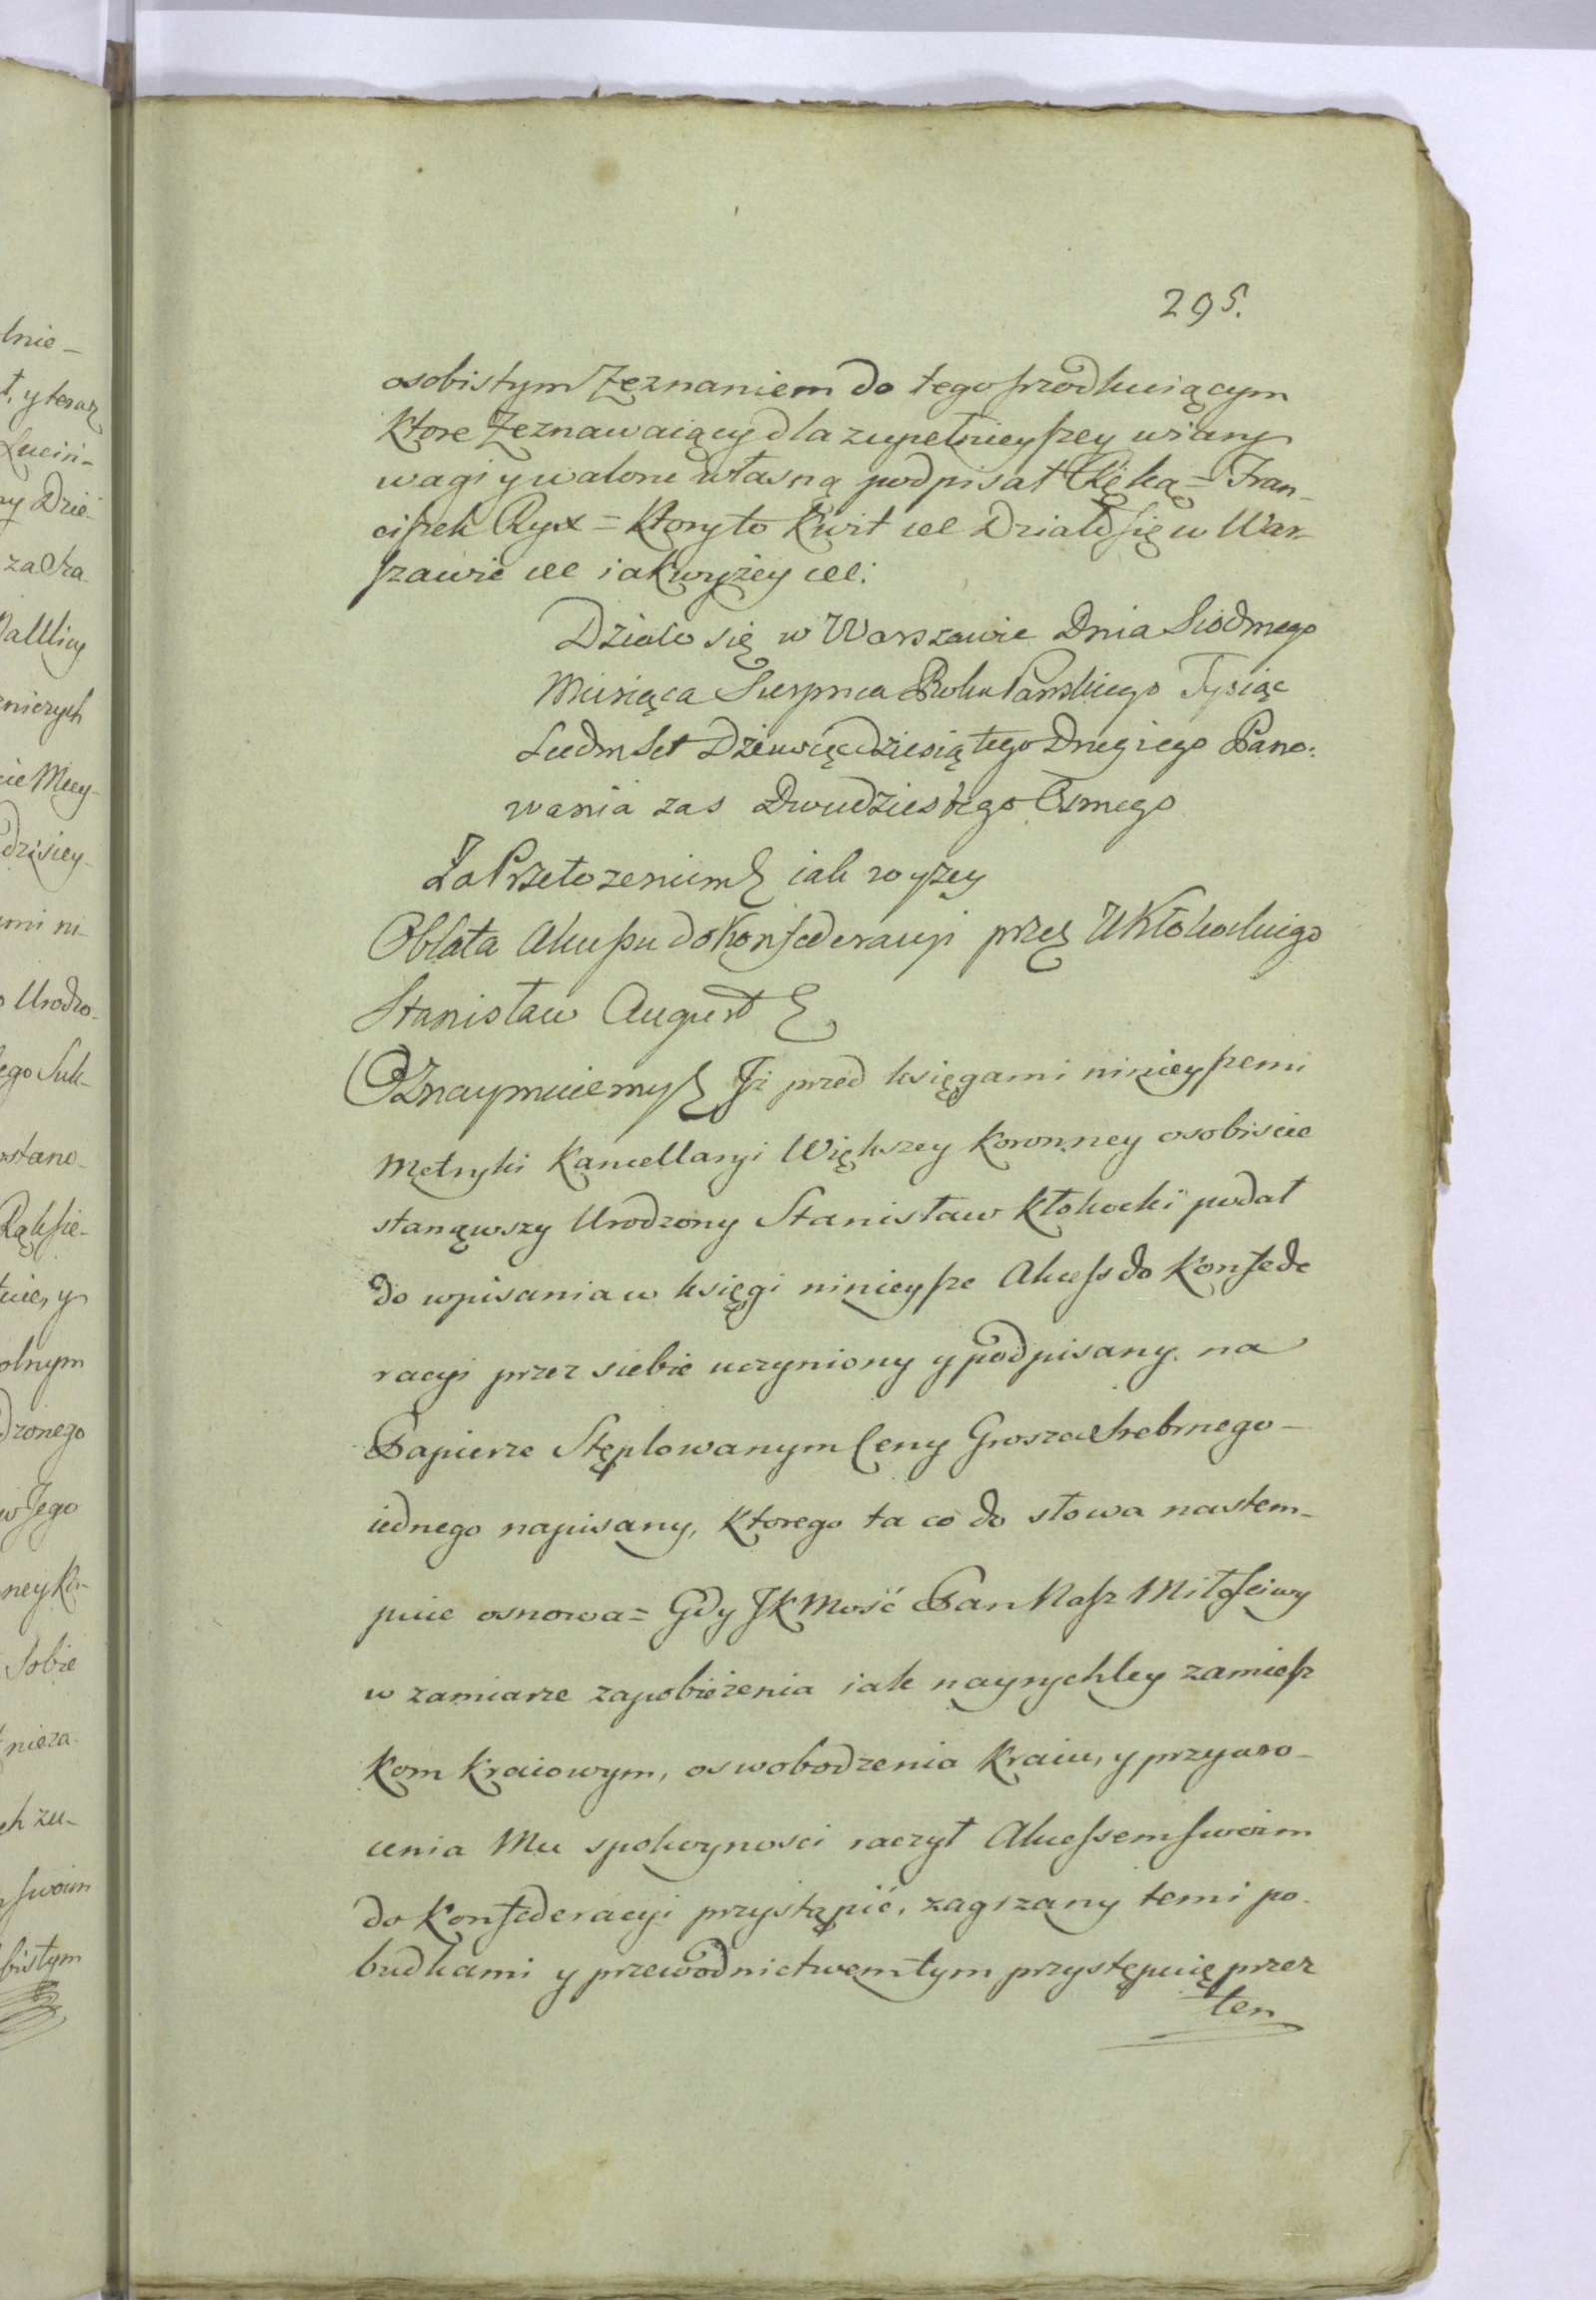 295.
osobistym Zeznaniem do tego srzodkuiącym
Ktore Zeznawaiący dla zupełnieyszey wiary
wagi y walonu własną podpisał Ręką = Fran-
ciszek Ryx = Ktory to Kwit etc Działo się w War-
szawie etc iak wyżey etc:
Dzialo się w Warszawie Dnia Siodmego
Miesiąca Sierpnia Roku Panskiego Tysiąc
Siedmset Dziewięcdziesiątego Drugiego Pano:
wania zas Dwudziestego Osmego
Za Przełozeniem iak wyzey
Oblata Akcessu do Konfederacyi przez U Kłokockiego
Stanisław August
Oznaymuiemy Iż przed księgami ninieyszemi
Metryki Kancellaryi Większey Koronney osobiscie
stanąwszy Urodzony Stanisław Kłokocki podał
do wpisania w księgi ninieysze Akcess do Konfede
racyi przez siebie uczyniony y podpisany na
Papierze Stęplowanym Ceny Grosza Srebrnego-
iednego napisany, Ktorego ta co do słowa nastem-
puie osnowa = Gdy JK Mość Pan Nasz Miłosciwy
w zamiarze zapobieżenia iak nayrychley zamiesz
kom Kraiowym, oswobodzenia Kraiu, y przywro-
cenia Mu spokoynosci raczył Akcessem swoim
do Konfederacyi przystąpić, zagrzany temi po-
budkami y przewodnictwem tym przystępuię przez
ten
lnie-
ł, y teraz
Lucin-
ny Dzie-
znierych
cie Mcey-
dzisiey-
emi ni-
o Urodzo-
ego Suk-
ostano-
cie, y
olnym
dzonego
w Jego
ney Ko-
Sobie
nieza-
ch zu-
swoim
bistym